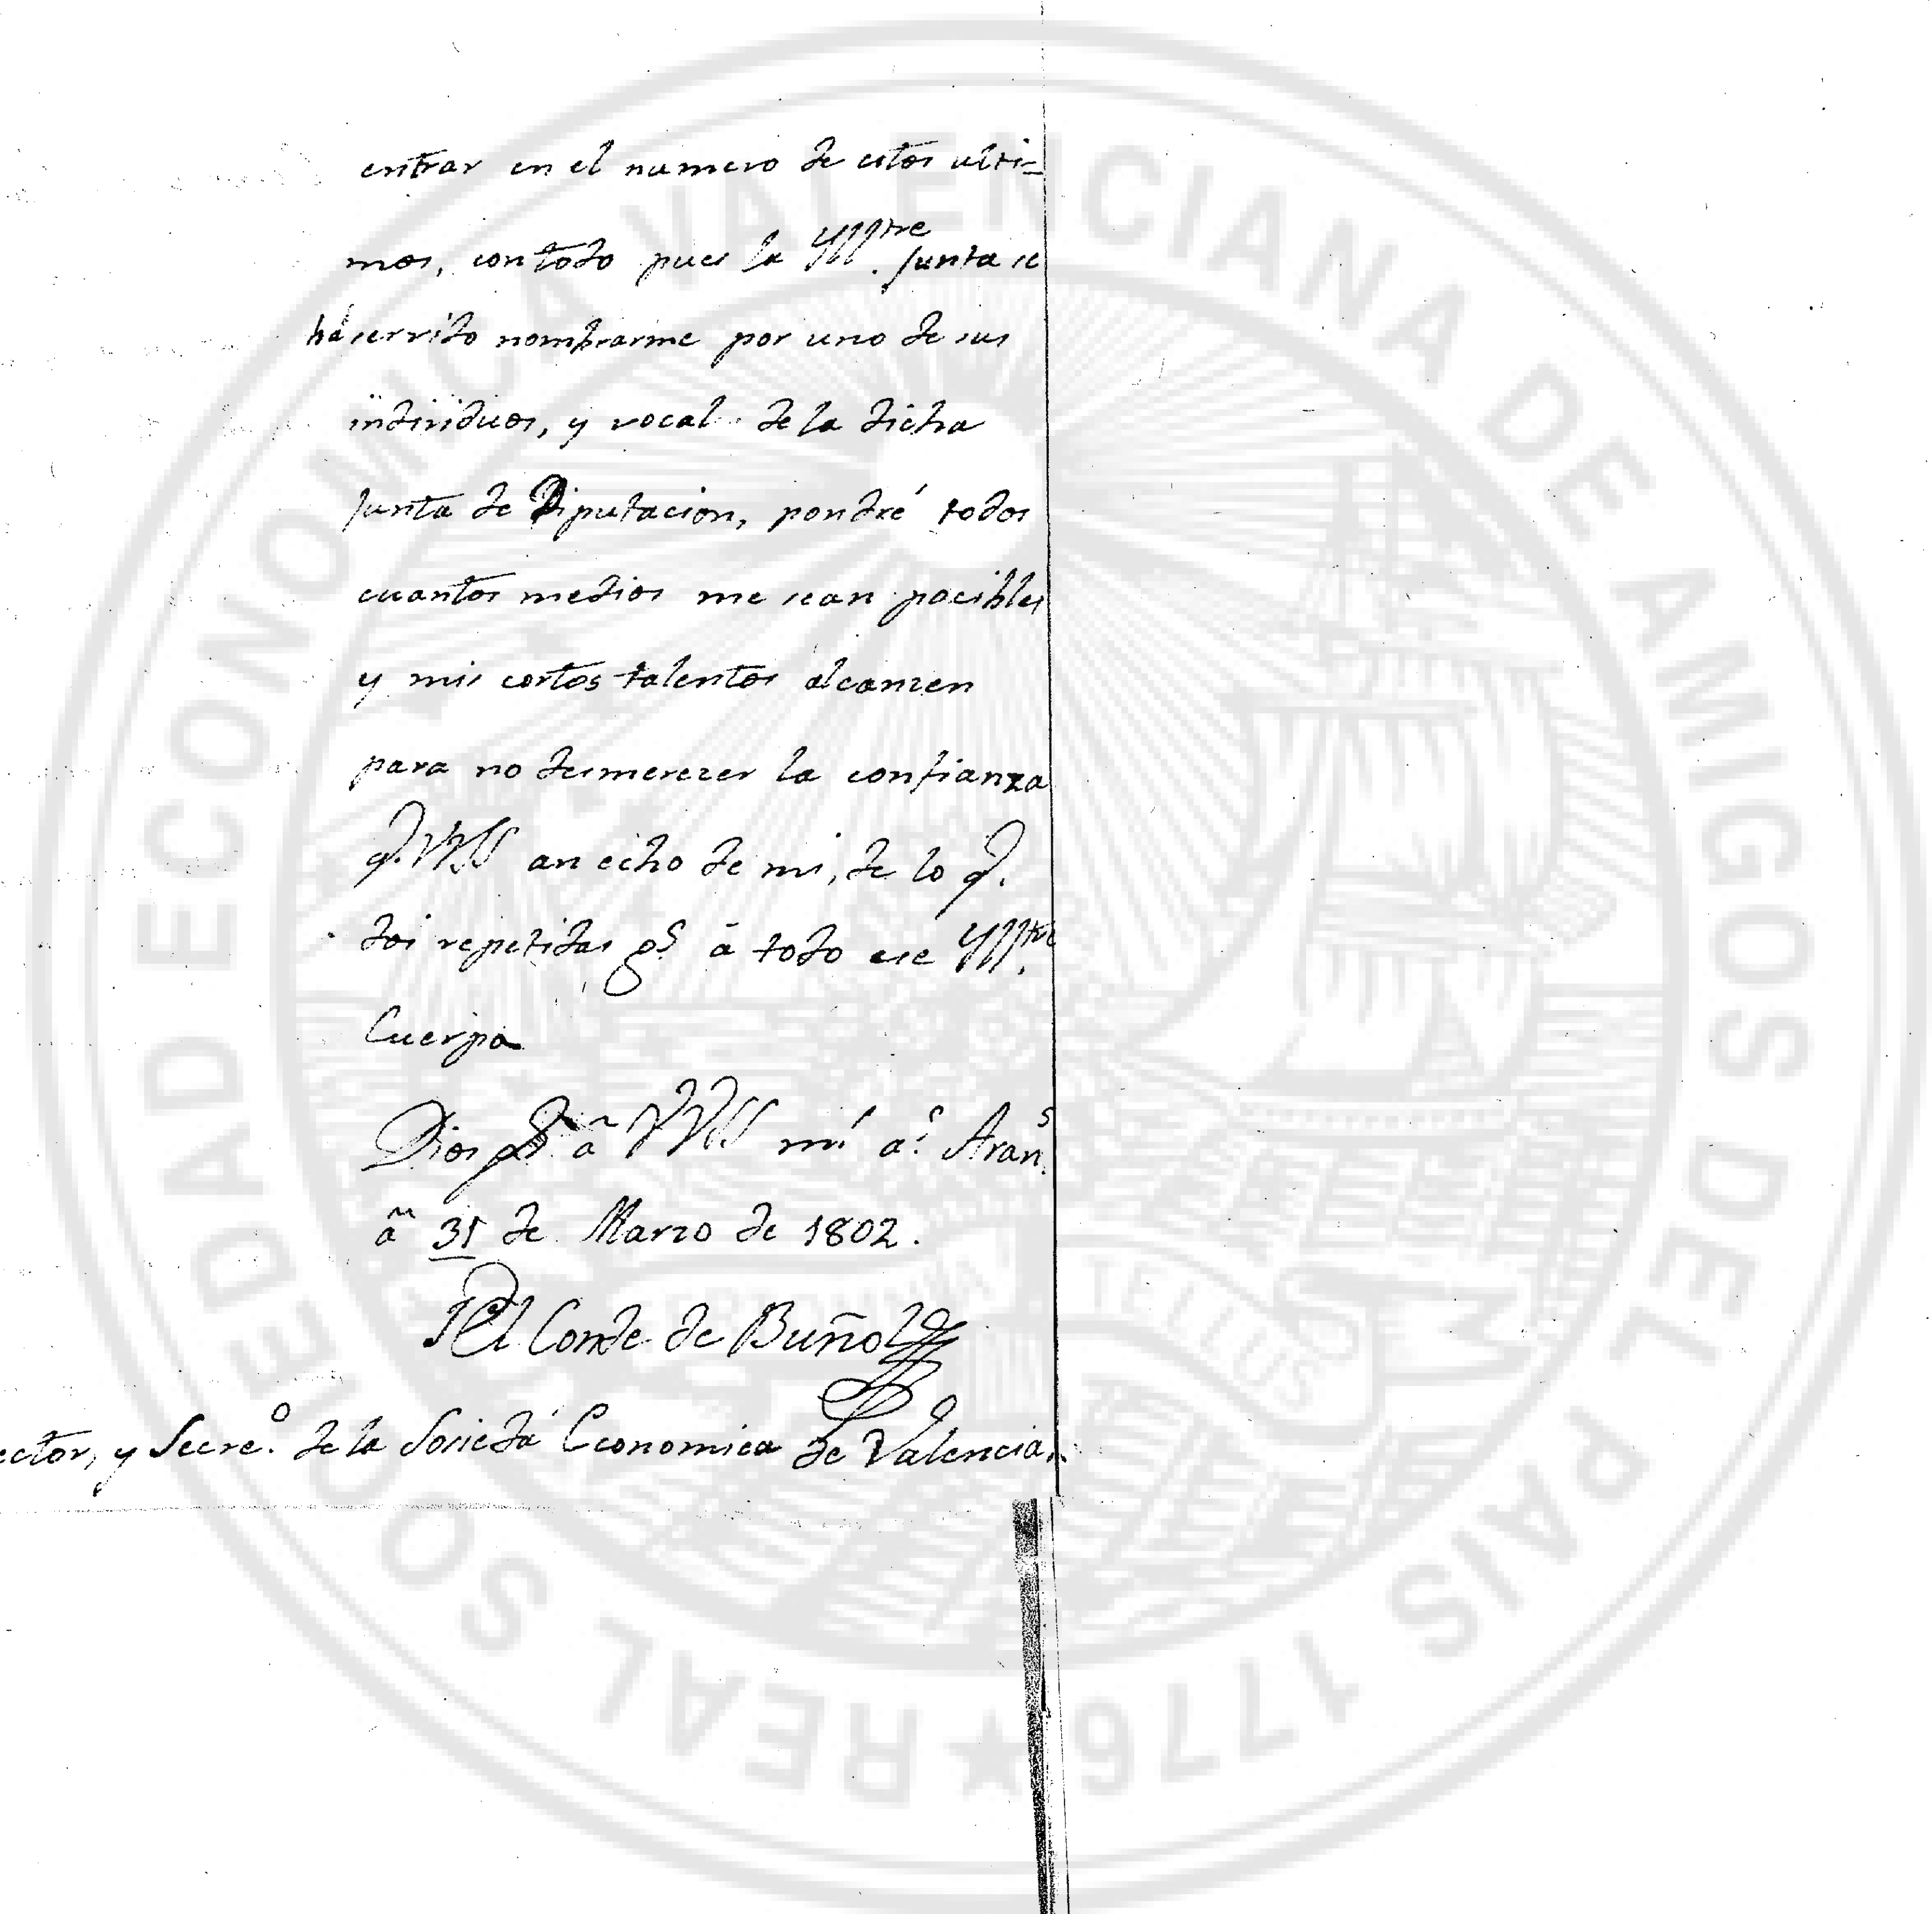 entrar en el numero de estos ulti-
mos, con todo pues la Yll.tre Junta se
há servido nombrarme por uno de sus
individuos, y vocal de la dicha
Junta de Diputacion, pondré todos
cuantos medios me sean pocibles
y mis cortos talentos alcanzen
para no desmerezer la confianza
q.e VVSS an echo de mi, de lo q.e
doi repetidas g.s á todo ese Yll.tre
Cuerpo
Dios g.e á VVSS m.s a.s Aran.s
á 31 de Marzo de 1802.
El Conde de Buñol
ector, y Secre.o de la Sociedá Economica de Valencia.
REAL SOCIEDAD ECONOMICA VALENCIANA DE AMIGOS DEL PAIS 1776